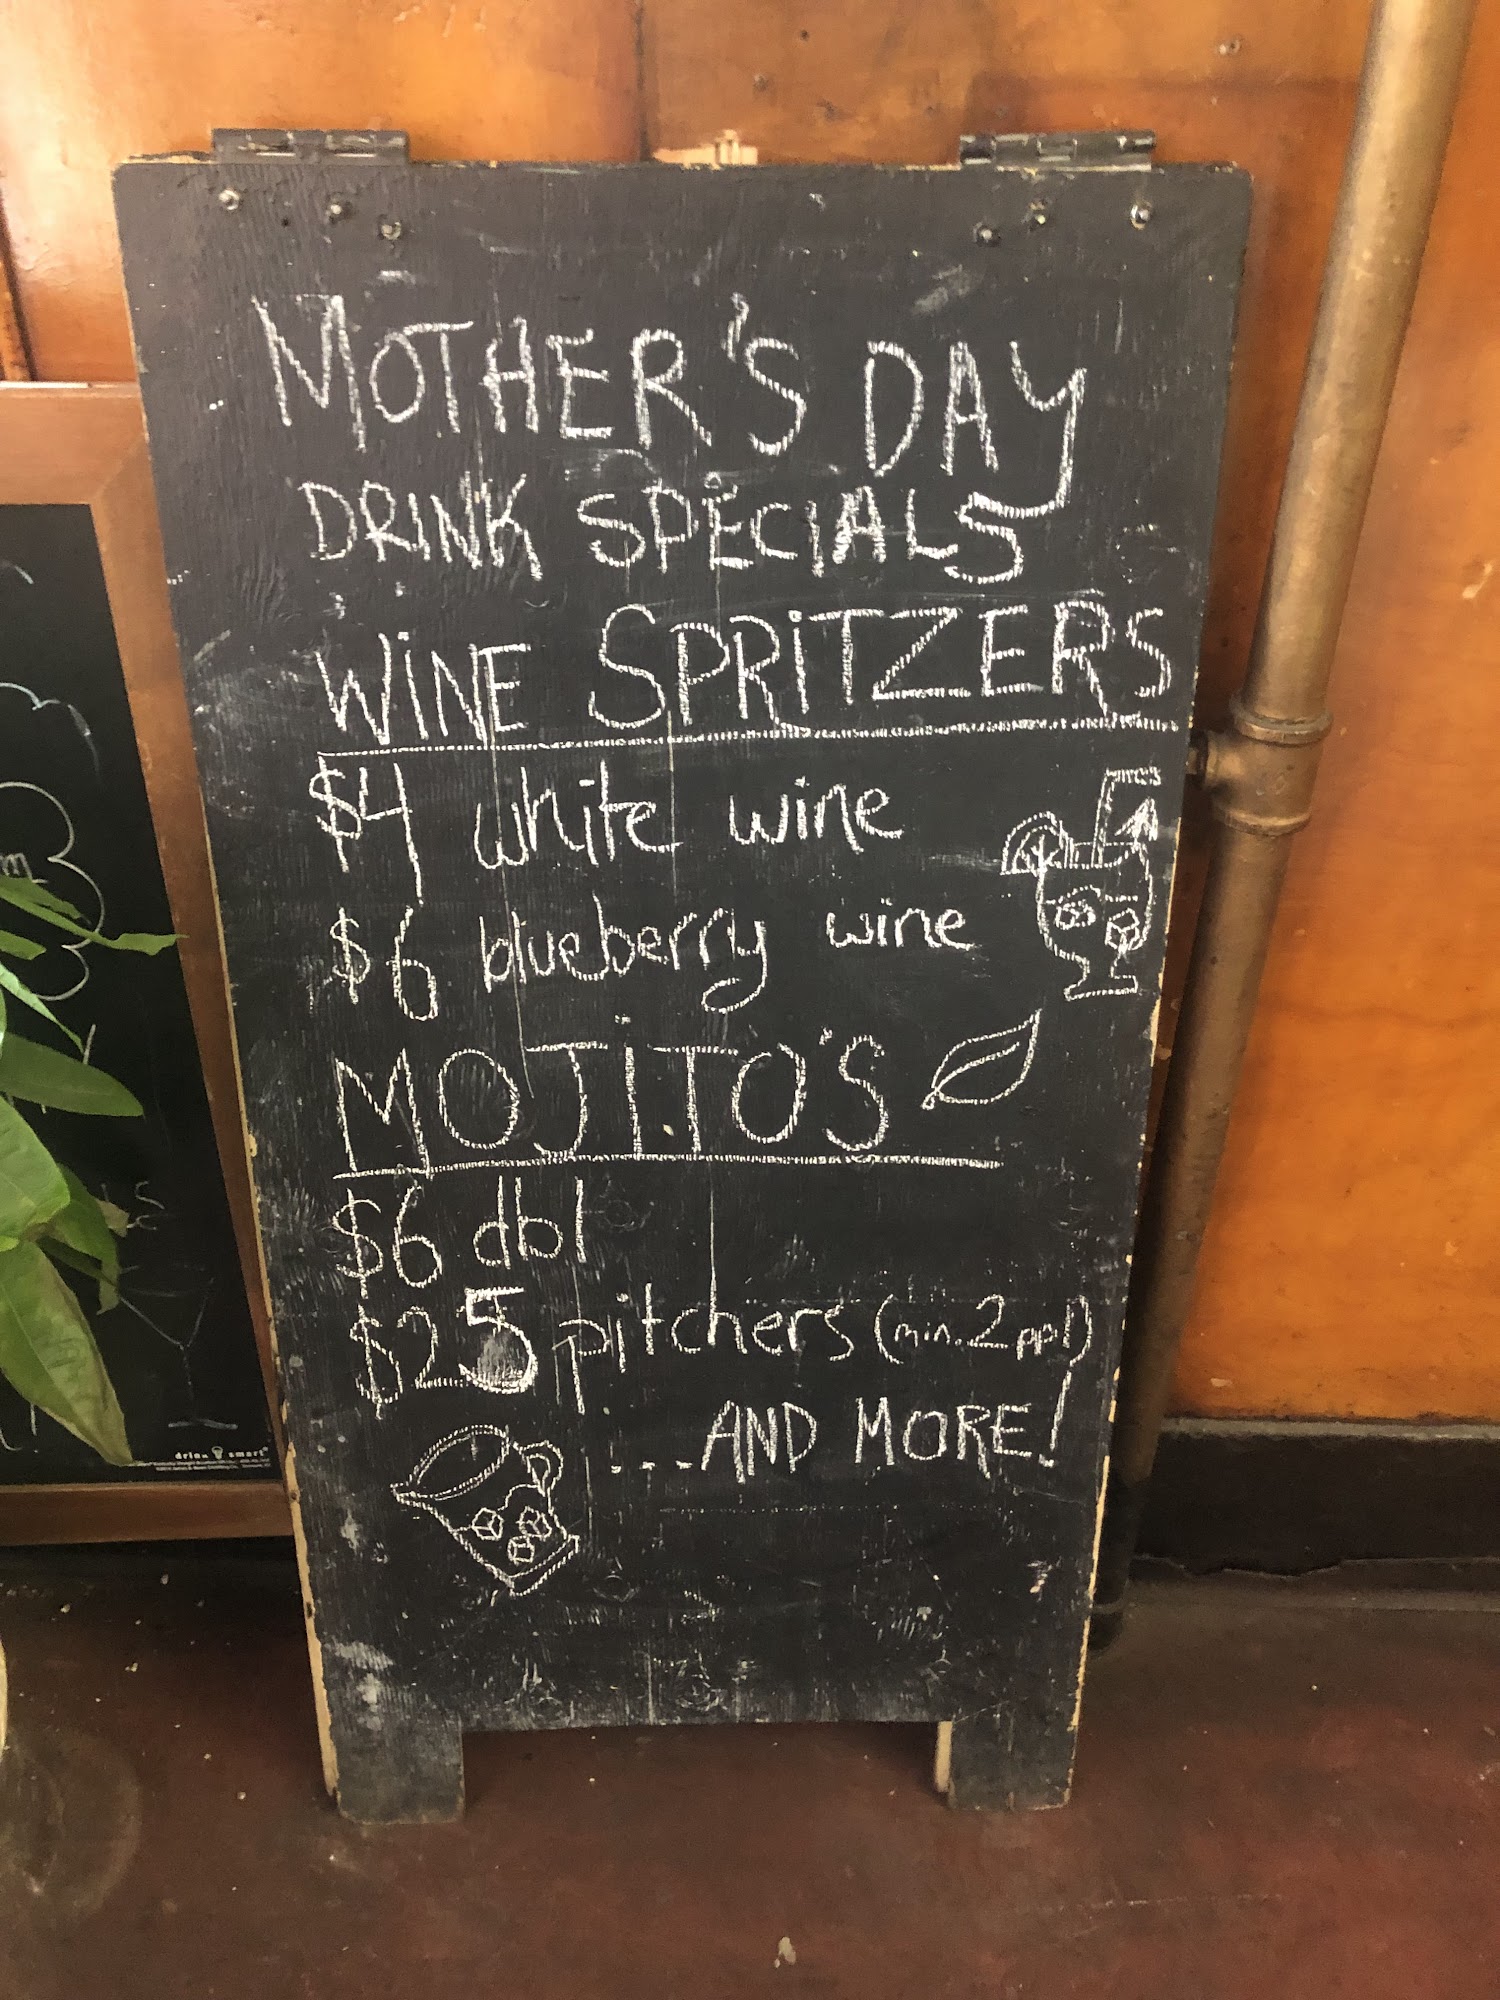 MOTHER'S DAY
DRINK SPECIALS
WINE SPRITZERS
$4 white wine
$6 blueberry wine
MOJITO'S
$6 dbl
$25 pitchers (min. 2 ppl)
...AND MORE!
drink smart